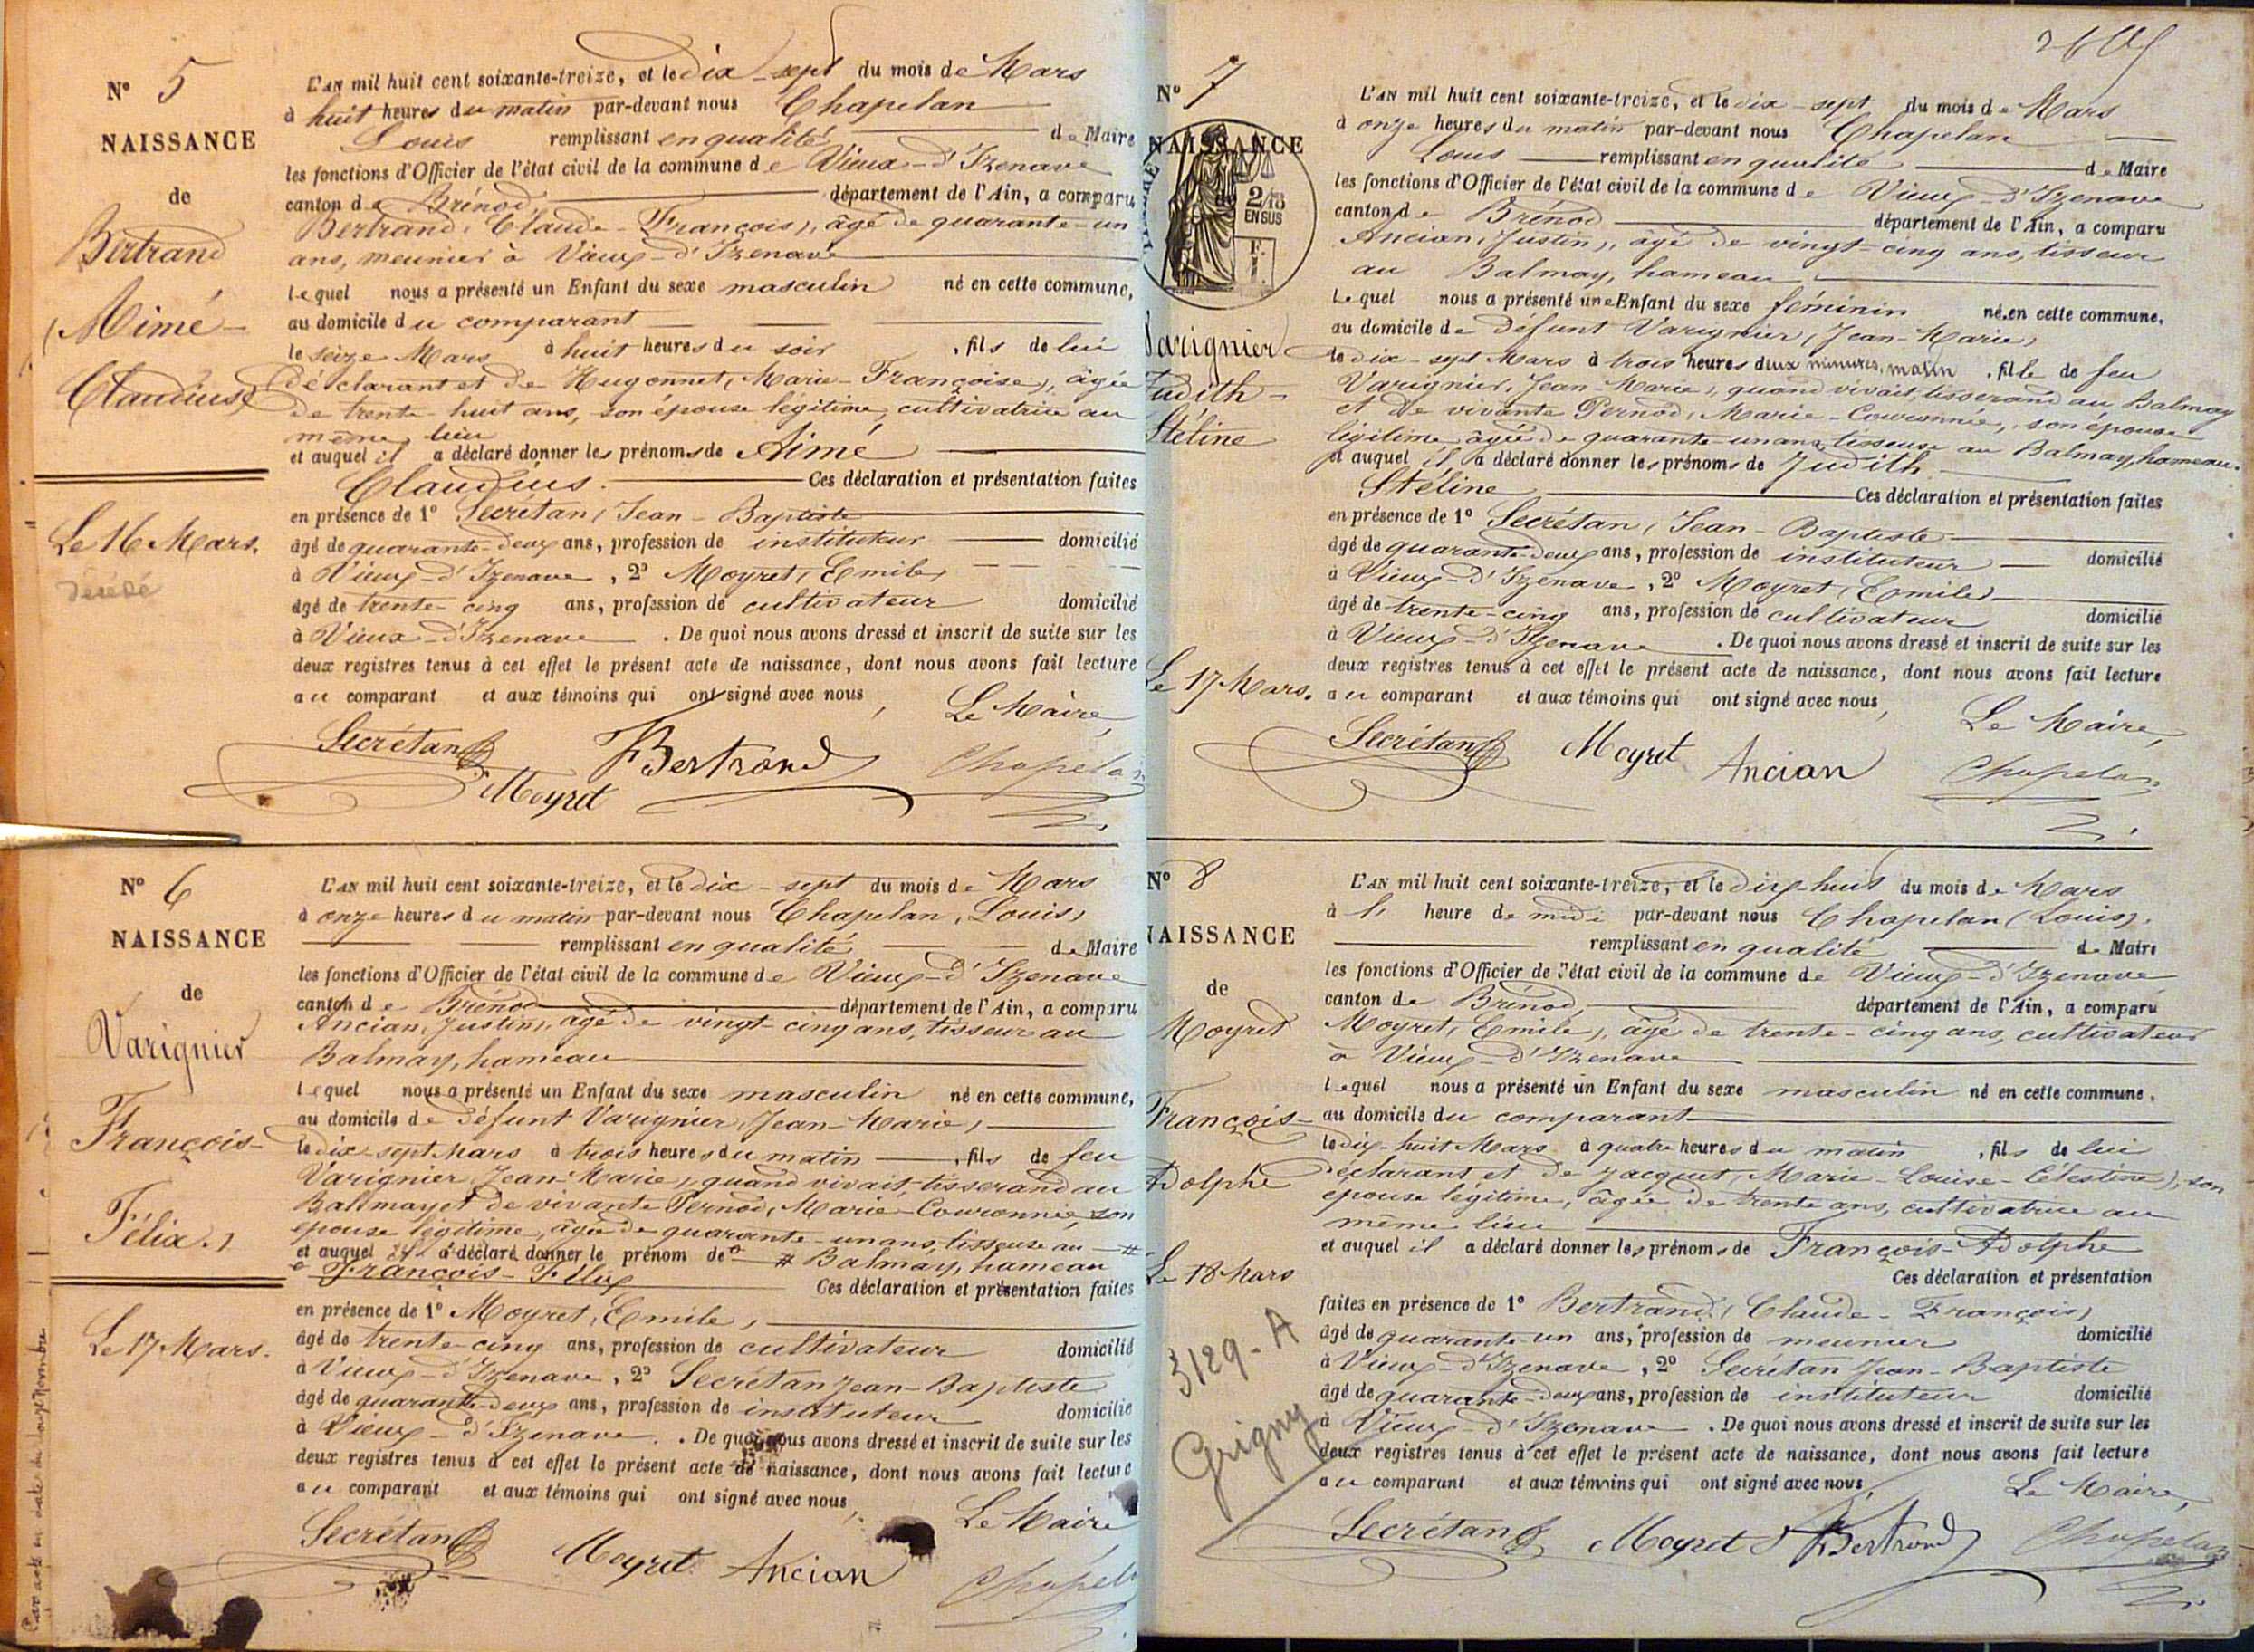 N° 5
NAISSANCE
de
Bertrand
Aimé-
Claudius
Le 16 Mars.
Décédé
L'AN mil huit cent soixante-treize, et le dix-sept du mois de Mars
à huit heures du matin par-devant nous Chapelan
Louis remplissant en qualité de Maire
les fonctions d'Officier de l'état civil de la commune de Vieux-d'Izenave
canton de Brénod, département de l'Ain, a comparu
Bertrand, Claude-François, âgé de quarante-un
ans, meunier à Vieux-d'Izenave
lequel nous a présenté un Enfant du sexe masculin né en cette commune,
au domicile du comparant
le seize Mars à huit heures du soir, fils de lui
déclarant et de Hugonnet (Marie-Françoise), âgée
de trente-huit ans, son épouse légitime, cultivatrice au
même lieu
et auquel il a déclaré donner les prénoms de Aimé
Claudius. Ces déclaration et présentation faites
en présence de 1° Secrétan, Jean-Baptiste
âgé de quarante-deux ans, profession de instituteur domicilié
à Vieux-d'Izenave, 2° Moyret, Emile,
âgé de trente-cinq ans, profession de cultivateur domicilié
à Vieux-d'Izenave. De quoi nous avons dressé et inscrit de suite sur les
deux registres tenus à cet effet le présent acte de naissance, dont nous avons fait lecture
au comparant et aux témoins qui ont signé avec nous,
Le Maire,
Secrétan Bertrand Chapelan
Moyret
N° 6
NAISSANCE
de
Varignier
François-
Félix.
Le 17 Mars.
L'AN mil huit cent soixante-treize, et le dix-sept du mois de Mars
à onze heures du matin par-devant nous Chapelan, Louis,
remplissant en qualité de Maire
les fonctions d'Officier de l'état civil de la commune de Vieux-d'Izenave
canton de Brénod département de l'Ain, a comparu
Ancian, Justin, âgé de vingt-cinq ans, tisseur au
Balmay, hameau
lequel nous a présenté un Enfant du sexe masculin né en cette commune,
au domicile de défunt Varignier, Jean-Marie,
le dix-sept Mars à trois heures du matin, fils de feu
Varignier Jean Marie, quand vivait, tisserand au
Balmay et de vivante Pernod, Marie-Couronnée, son
épouse légitime, âgée de quarante-un ans, tisseuse au #
et auquel il a déclaré donner le prénom de # Balmay, hameau
François-Félix Ces déclaration et présentation faites
en présence de 1° Moyret, Emile,
âgé de trente-cinq ans, profession de cultivateur domicilié
à Vieux-d'Izenave, 2° Secrétan Jean-Baptiste
âgé de quarante-deux ans, profession de instituteur domicilié
à Vieux-d'Izenave. De quoi nous avons dressé et inscrit de suite sur les
deux registres tenus à cet effet le présent acte de naissance, dont nous avons fait lecture
au comparant et aux témoins qui ont signé avec nous,
Le Maire
Secrétan Moyret Ancian Chapelan
N° 7
NAISSANCE
2/10
EN SUS
Varignier
Judith-
Stéline
Le 17 Mars.
L'AN mil huit cent soixante-treize, et le dix-sept du mois de Mars
à onze heures du matin par-devant nous Chapelan
Louis remplissant en qualité de Maire
les fonctions d'Officier de l'état civil de la commune de Vieux-d'Izenave
canton de Brénod département de l'Ain, a comparu
Ancian, Justin, âgé de vingt-cinq ans, tisseur
au Balmay, hameau
Lequel nous a présenté une Enfant du sexe féminin né en cette commune,
au domicile de défunt Varignier (Jean-Marie)
le dix-sept Mars à trois heures deux minutes, matin, fille de feu
Varignier, Jean Marie, quand vivait, tisserand au Balmay
et de vivante Pernod, Marie-Couronnée, son épouse
légitime âgée de quarante-un ans, tisseuse au Balmay, hameau.
et auquel il a déclaré donner les prénoms de Judith
Stéline Ces déclaration et présentation faites
en présence de 1° Secrétan (Jean-Baptiste
âgé de quarante-deux ans, profession de instituteur domicilié
à Vieux-d'Izenave, 2° Moyret (Emile)
âgé de trente-cinq ans, profession de cultivateur domicilié
à Vieux-d'Izenave. De quoi nous avons dressé et inscrit de suite sur les
deux registres tenus à cet effet le présent acte de naissance, dont nous avons fait lecture
au comparant et aux témoins qui ont signé avec nous,
Le Maire,
Secrétan Moyret Ancian Chapelan
N° 8
NAISSANCE
de
Moyret
François-
Adolphe
Le 18 Mars
3129-A
Grigny
L'AN mil huit cent soixante-treize, et le dix huit du mois de Mars
à heure de midi par-devant nous Chapelan (Louis),
remplissant en qualité de Maire
les fonctions d'Officier de l'état civil de la commune de Vieux-d'Izenave
canton de Brénod, département de l'Ain, a comparu
Moyret, Emile, âgé de trente-cinq ans, cultivateur
à Vieux-d'Izenave
lequel nous a présenté un Enfant du sexe masculin né en cette commune,
au domicile du comparant
le dix-huit Mars à quatre heures du matin, fils de lui
déclarant et de Jacquet (Marie-Louise-Célestine), son
épouse légitime, âgée de trente ans, cultivatrice au
même lieu
et auquel il a déclaré donner les prénoms de François-Adolphe
Ces déclaration et présentation
faites en présence de 1° Bertrand (Claude-François)
âgé de quarante-un ans, profession de meunier domicilié
à Vieux-d'Izenave, 2° Secrétan Jean-Baptiste
âgé de quarante-deux ans, profession de instituteur domicilié
à Vieux-d'Izenave. De quoi nous avons dressé et inscrit de suite sur les
deux registres tenus à cet effet le présent acte de naissance, dont nous avons fait lecture
au comparant et aux témoins qui ont signé avec nous,
Le Maire,
Secrétan Moyret Bertrand Chapelan